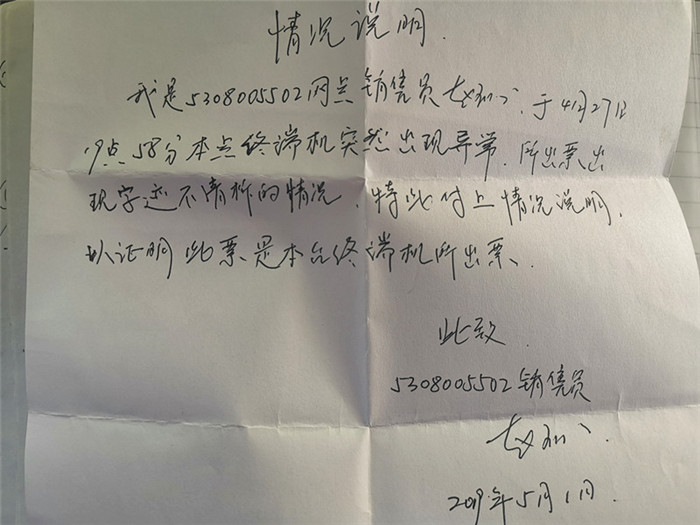 情况说明
我是5308005502网点销售员赵 于4月27日
19点58分本点终端机突然出现异常，所出票出
现字迹不清晰的情况，特此付上情况说明，
以证明此票是本台终端机所出票、
此致
5308005502销售员
赵
2019年5月1日